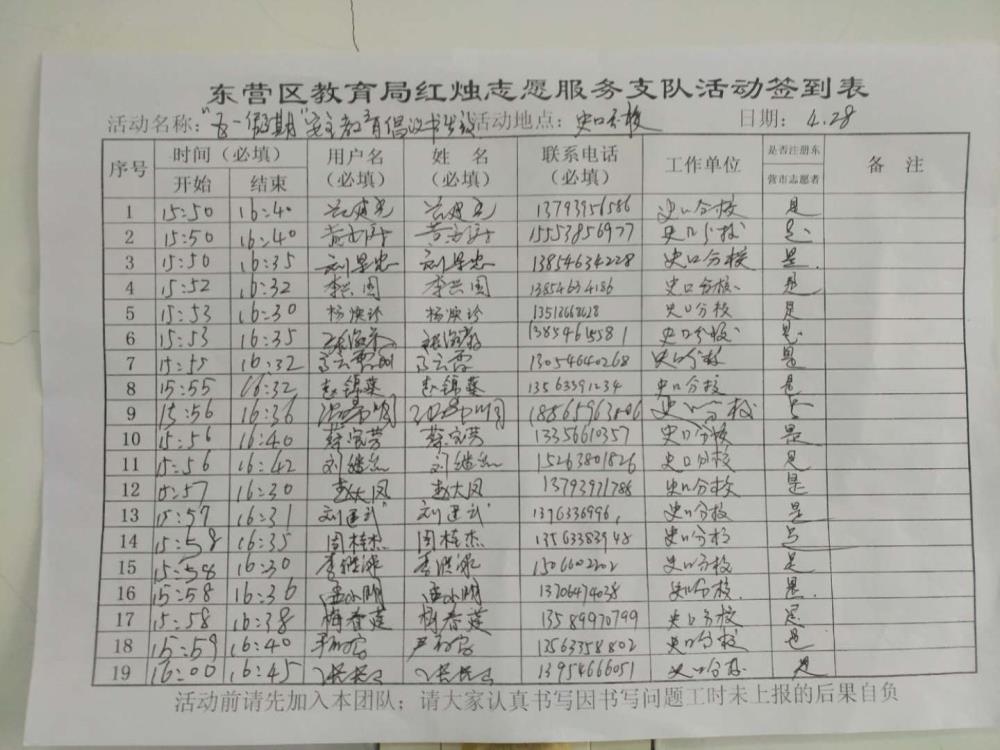 东营区教育局红烛志愿服务支队活动签到表
活动名称："五一假期"安全教育倡议书 活动地点：史口分校 日期：4.28
序号 时间（必填） 用户名（必填） 姓名（必填） 联系电话（必填） 工作单位 是否注册东营市志愿者 备注
开始 结束
1 15:50 16:40 13793956586 史口分校 是
2 15:50 16:40 15553856977 史口分校 是
3 15:50 16:35 刘星忠 刘星忠 13854634228 史口分校 是
4 15:52 16:32 李兴国 李兴国 13854634136 史口分校 是
5 15:53 16:30 杨焕珍 杨焕珍 史口分校 是
6 15:53 16:35 史口分校 是
7 15:55 16:32 13054640268 史口分校 是
8 15:55 16:32 赵锦葵 赵锦葵 13563391234 史口分校 是
9 15:56 16:36 史口分校
10 15:56 16:40 蔡家芳 蔡家芳 13356610357 史口分校 是
11 15:56 16:42 15263801826 史口分校 是
12 15:57 16:30 赵大凤 赵大凤 13793971788 史口分校 是
13 15:57 16:31 刘建武 刘建武 史口分校 是
14 15:58 16:35 周桂杰 周桂杰 13563383948 史口分校
15 15:58 16:30 史口分校 是
16 15:58 16:36 13706474038 史口分校 是
17 15:58 16:38 梅春莲 梅春莲 13589970799 史口分校 是
18 15:59 16:40 13563358802 史口分校 是
19 16:00 16:45 13954666051 史口分校 是
活动前请先加入本团队；请大家认真书写因书写问题工时未上报的后果自负